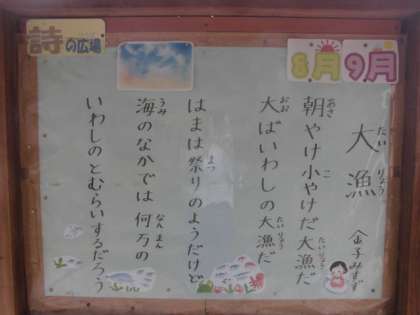 詩の広場
8月9月
大漁
たいりょう
金子みすゞ
朝やけ小やけだ大漁だ
あさ こ たいりょう
大ばいわしの大漁だ
おお たいりょう
はまは祭りのようだけど
まつ
海のなかでは何万の
うみ なんまん
いわしのとむらいするだろう